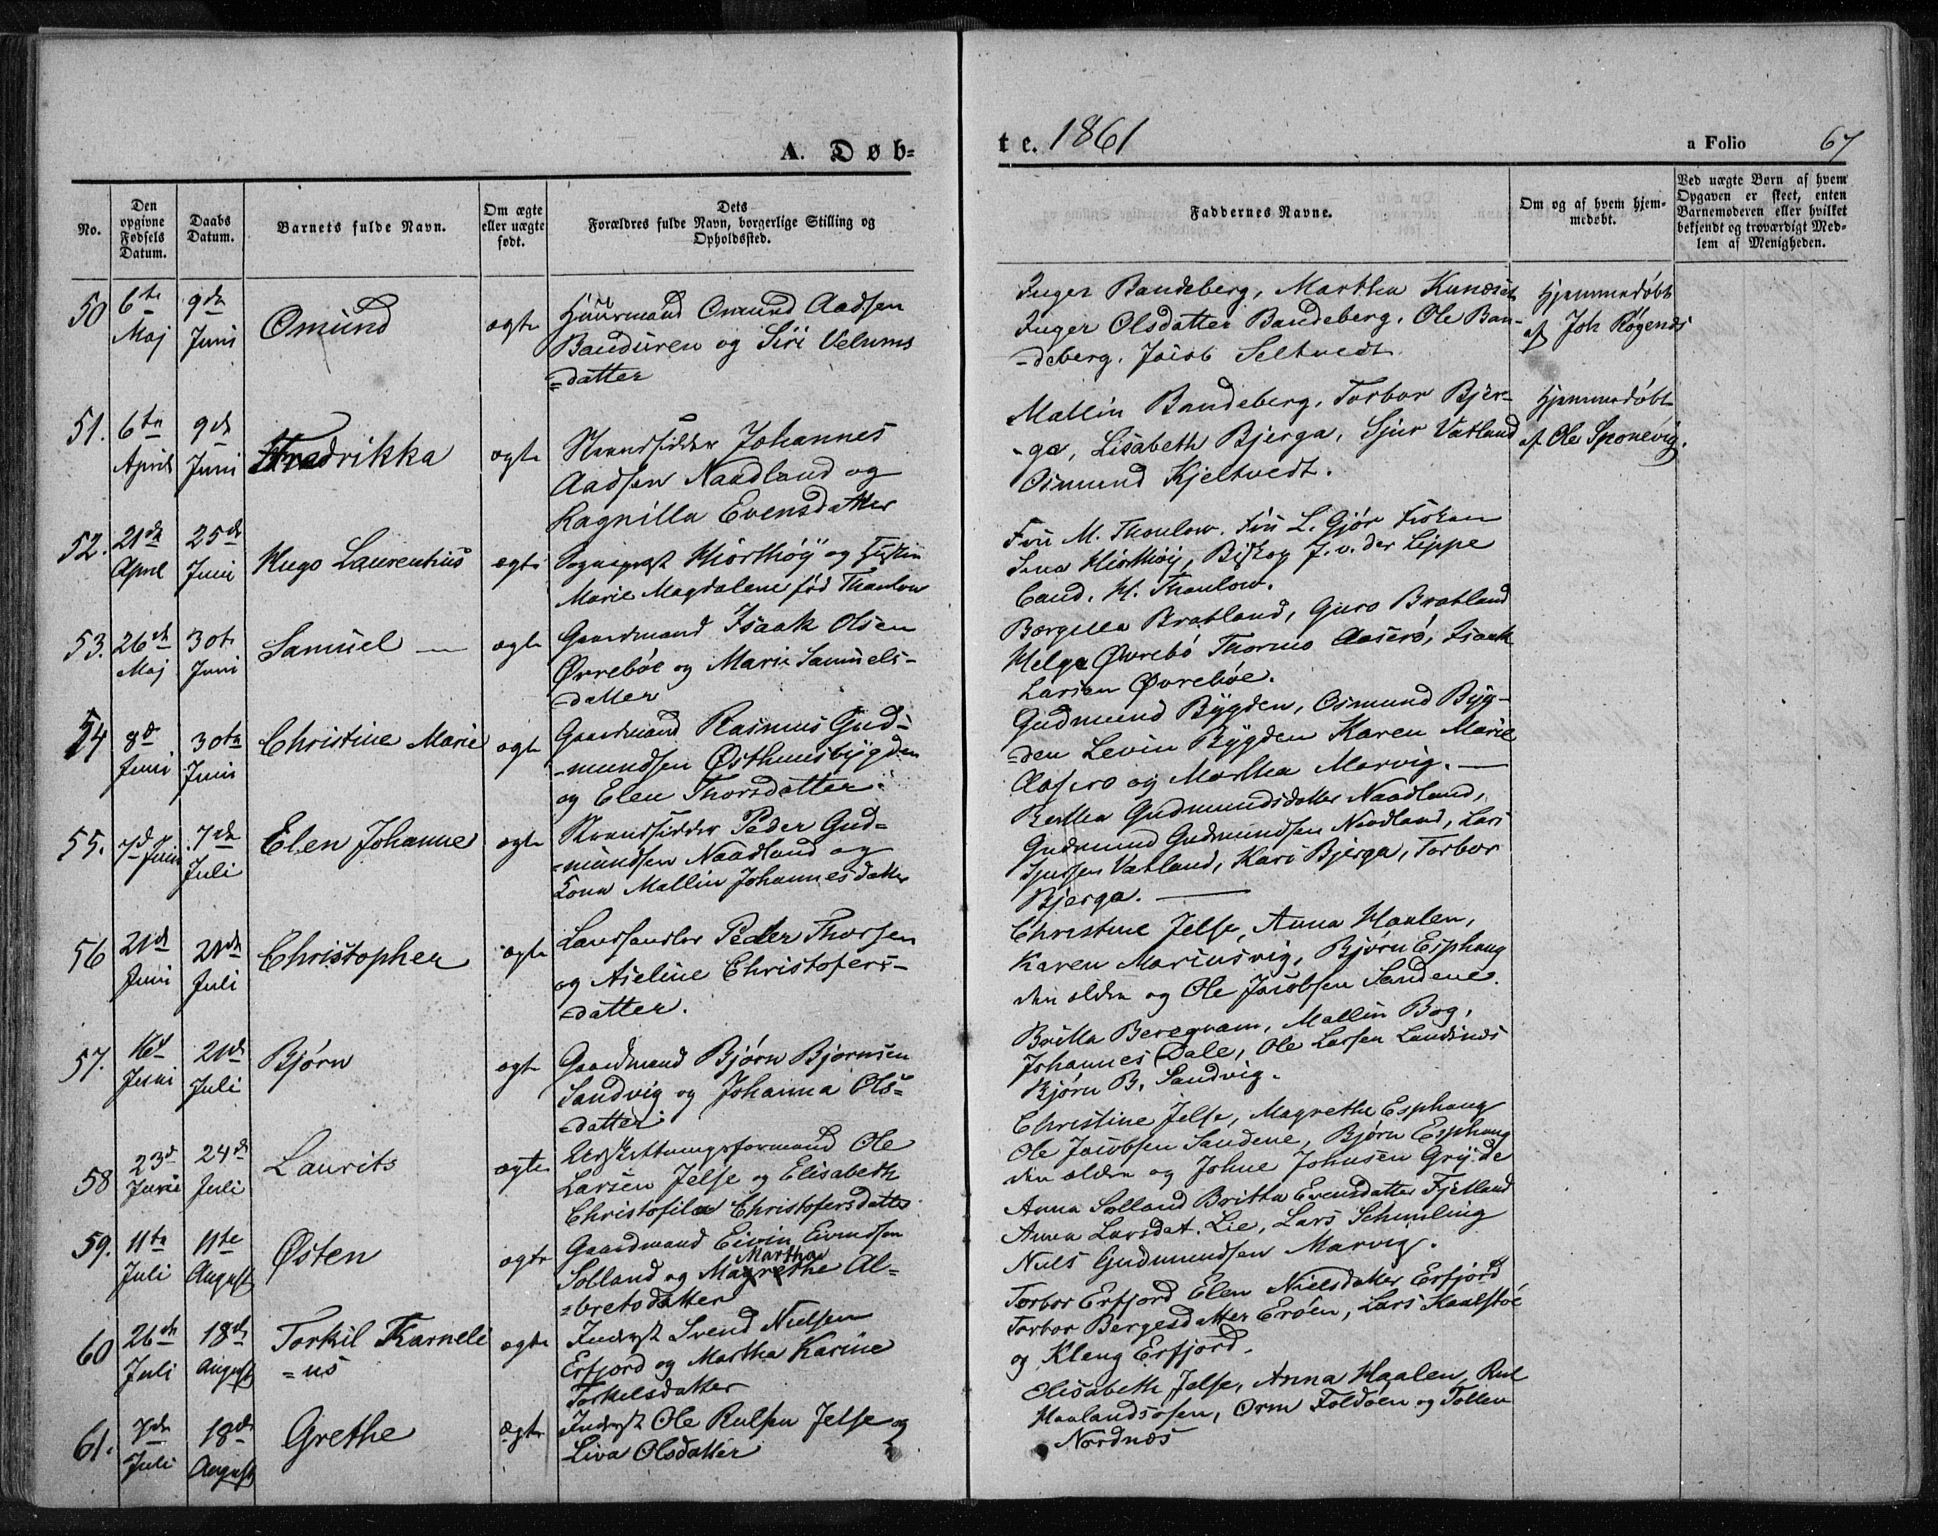 A. Døb-
te. 1861
a Folio 67
No.
Den opgivne Fødsels Datum.
Daabs Datum.
Barnets fulde Navn.
Om ægte eller uægte født.
Dets Forældres fulde Navn, borgerlige Stilling og Opholdssted.
Faddernes Navne.
Om og af hvem hjemmedøbt.
Ved uægte Børn af hvem Opgaven er skeet, enten Barnemoderen eller hvilket bekjendt og troværdigt Medlem af Menigheden.
50 6te Maj 9de Juni Omund ægte
Huusmand Omund Aadsen
Bauduren og Siri Velums
=datter
Inger Bandeberg, Martha
Inger Olsdatter Bandeberg, Ole Ban-
-deberg, Jacob Seltvedt
Hjemmedøbt
af Joh Røgenes
51. 6te April 9de Juni Fredrikka ægte
Strandsidder Johannes
Aadsen Naadland og
Ragnilla Evensdatter
Mallin Bandeberg, Torbor Bjer-
-ga, Lisabeth Bjerga, Sjur Vatland
Osmund Kjeltvedt.
Hjemmedøbt
af Ole Sponevig.
52. 21de April 25de Juni Hugo Laurentius ægte
Sognepræst Hiorthøy og Hustru
Marie Magdalene fød Thaulow
Fru M. Thaulow. Frü L. Gjør
Lina Hiorthøij, Biskop J. v. der Lippe
Cand. H. Thaulow.
53. 26de Maj 30te Juni Samuel — ægte
Gaardmand Isaak Olsen
Øvrebøe og Marie Samuels-
-datter
Børgilla Bratland, Guro Bratland
Helga Øvrebö Thormo Aaserö, Isaak
Larsen Øvrebøe.
54 8de Juni 30te Juni Christine Marie ægte
Gaardmand Rasmus Gud-
-mundsen Østhuusbygden
og Elen Thorsdatter.
Gudmund Bÿgden, Osmund Bÿg-
=den Levin Bÿgden Karen Marie
Aasero og Martha Marvig. —
55. 7de Juni 7de Juli Elen Johanne ægte
Strandsidder Peder Gud-
=mundsen Naadland og
Lona Mallin Johannesdatter
Bertha Gudmundsdatter Naadland,
Gudmund Gudmundsen Naadland, Lars
Sjursen Vatland, Kari Bjerga, Torbor
Bjerga. —
56 21de Juni 21de Juli Christopher ægte
Landhandler Peder Thorsen
og Aseline Christofers-
-datter.
Christine Jelse, Anna Haalen,
Karen Mariusvig, Bjørn Esphaug
den ældre og Ole Jacobsen Sandene.
57. 16de Juni 21de Juli Bjørn ægte
Gaardmand Bjørn Bjørnsen
Sandvig og Johanna Ols-
-datter
Britta Beregvam, Mallin Bog,
Johannes Dale, Ole Larsen Landsnes
Bjørn B. Sandvig.
58 23de Juni 24de Juli Laurits ægte
Udskiftningsformand Ole
Larsen Jelse og Elisabeth
Christofila Christofersdatter
Christine Jelse, Magrethe Esphaug
Ole Jacobsen Sandene, Bjørn Esphaug
den ældre og Johne Johnsen Grijde
59. 11te Juli 11te August Østen ægte
Gaardmand Eivin Eivindsen
Martha
Solland og Magrethe Al-
=bretsdatter
Anna Solland Britha Evensdatter Fjelland
Anna Larsdat. Lie, Lars Schmling
Niels Gudmundsen Marvig.
60 26de Juli 18de August Torkil Karneli
=us ægte
Inderst Svend Nielsen
Erfjord og Martha Karine
Torkelsdatter
Torbor Erfjord Elen Nielsdatter Erfjord
Torbor Bergesdatter Erøen, Lars Haalstöe
og Kleng Erfjord.
61. 7de Juli 18de August Grethe ægte
Inderst Ole Rulsen Jelse og
Liva Olsdatter
Elisabeth Jelse, Anna Haalen, Rul
Haalandsosen, Orm Foldøen og Tollen
Nordnæs